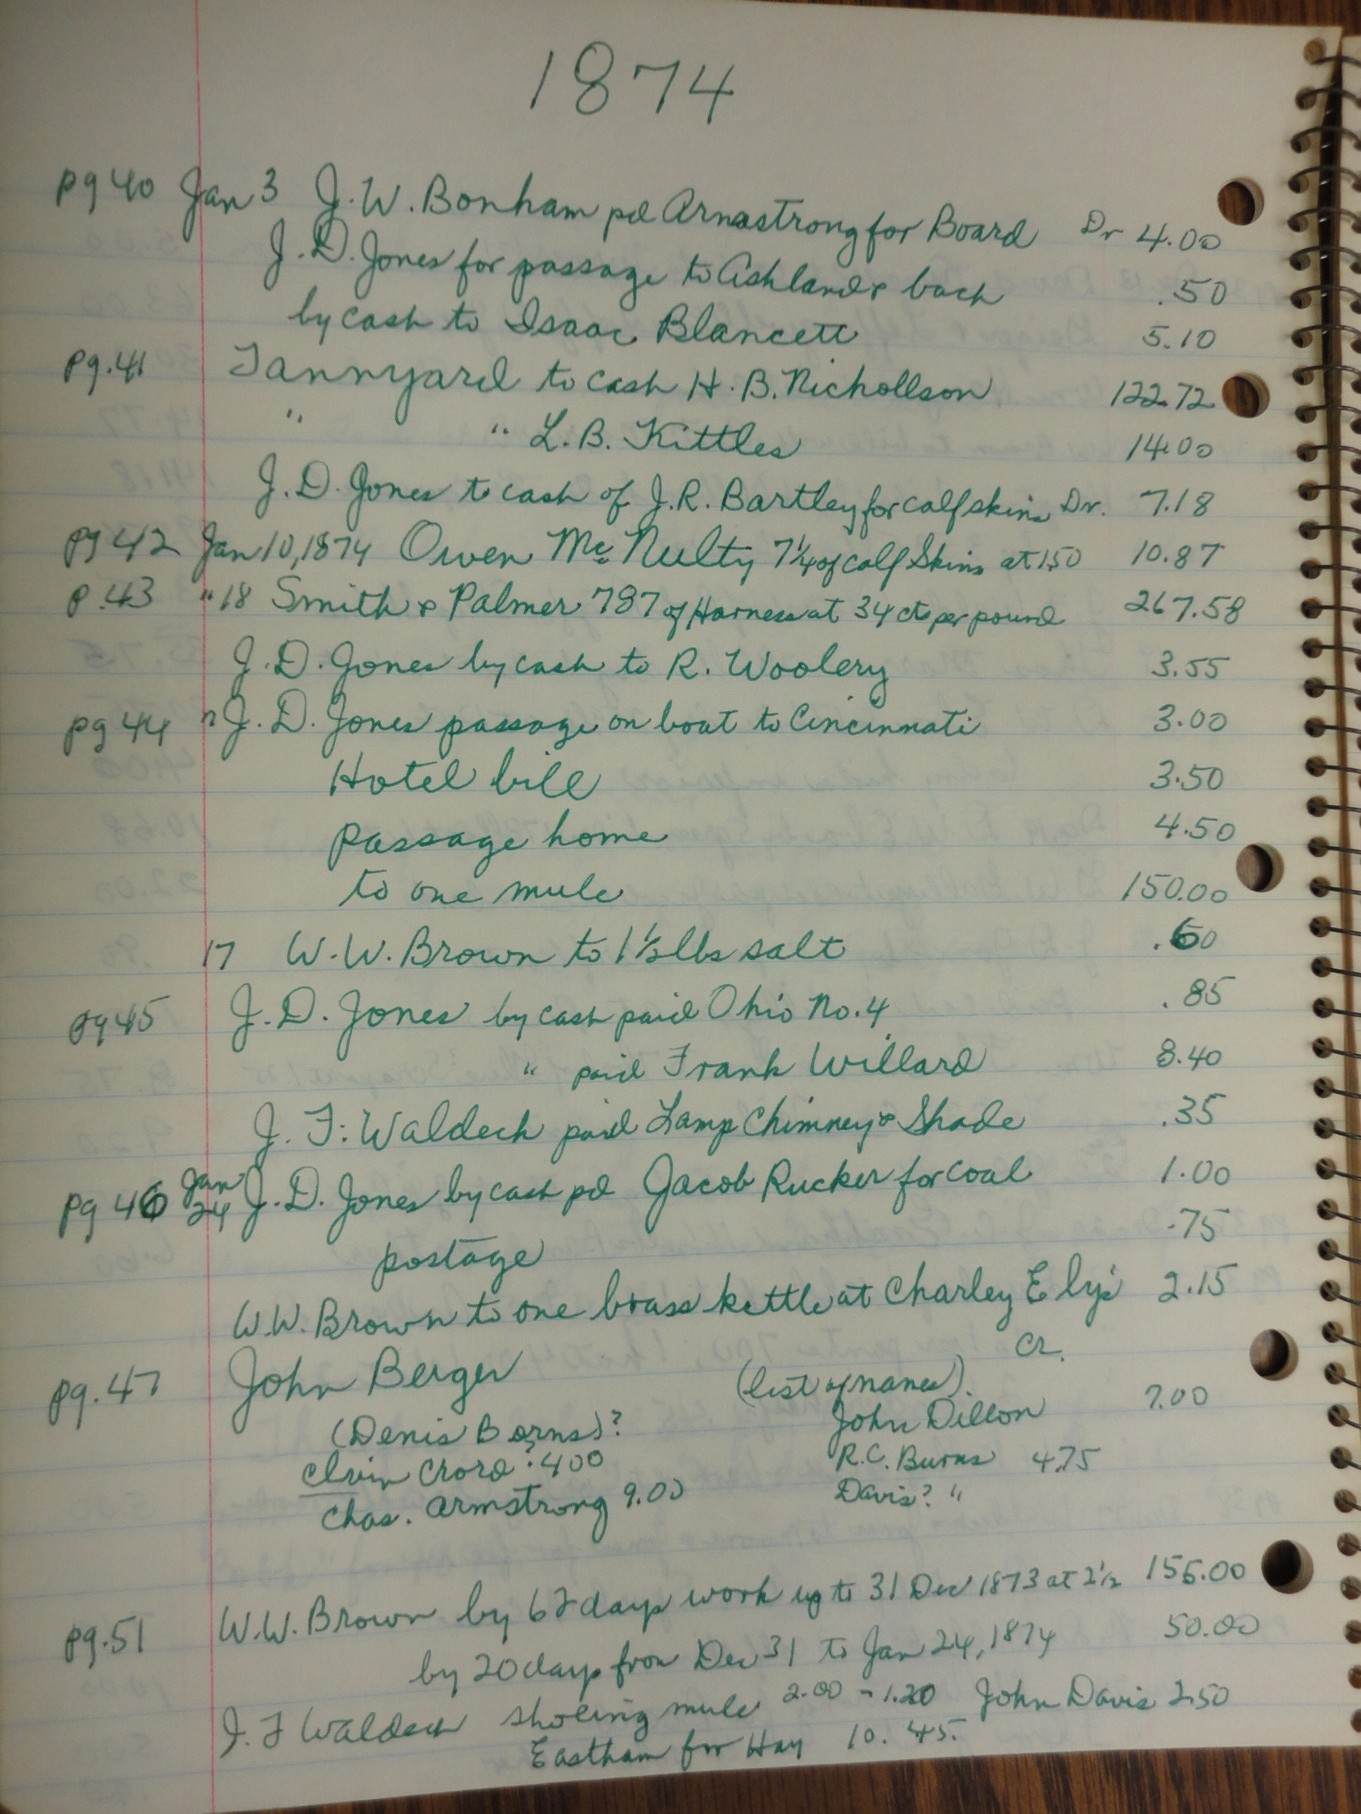 1874
pg 40 Jan 3 J. W. Bonham pd Armstrong for Board Dr 4.00
J. D. Jones for passage to Ashland & back .50
by cash to Isaac Blancett 5.10
pg. 41 Tannyard to cash H. B. Nichollson 122.72
" " L. B. Kittles 14.00
J. D. Jones to cash of J. R. Bartley for calf skins Dr. 7.18
pg 42 Jan 10, 1874 Owen McNulty 7 1/4 of calf Skins at 1.50 10.87
p. 43 " 18 Smith & Palmer 787 of Harness at 34 cts per pound 267.58
J. D. Jones by cash to R. Woolery 3.55
pg 44 " J. D. Jones passage on boat to Cincinnati 3.00
Hotel bill 3.50
Passage home 4.50
to one mule 150.00
17 W. W. Brown to 1 1/2 lbs salt .60
pg 45 J. D. Jones by cash paid Ohio No. 4 .85
" paid Frank Willard 8.40
J. F. Waldeck paid Lamp Chimney & Shade .35
pg 46 Jan 24 J. D. Jones by cash pd Jacob Rucker for coal 1.00
postage .75
W. W. Brown to one brass kettle at Charley Ely's 2.15
Cr.
pg. 47 John Berger (list of names).
(Denis Borns)? John Dillon 7.00
Crord ? 400 R.C. Burns 4.75
Chas. Armstrong 9.00 Davis? "
pg. 51 W. W. Brown by 62 days work up to 31 Dec 1873 at 2 1/2 155.00
by 20 days from Dec 31 to Jan 24, 1874 50.00
J. F Waldeck shoeing mule 2.00 - 1.20 John Davis 2.50
Eastham for Hay 10.45.